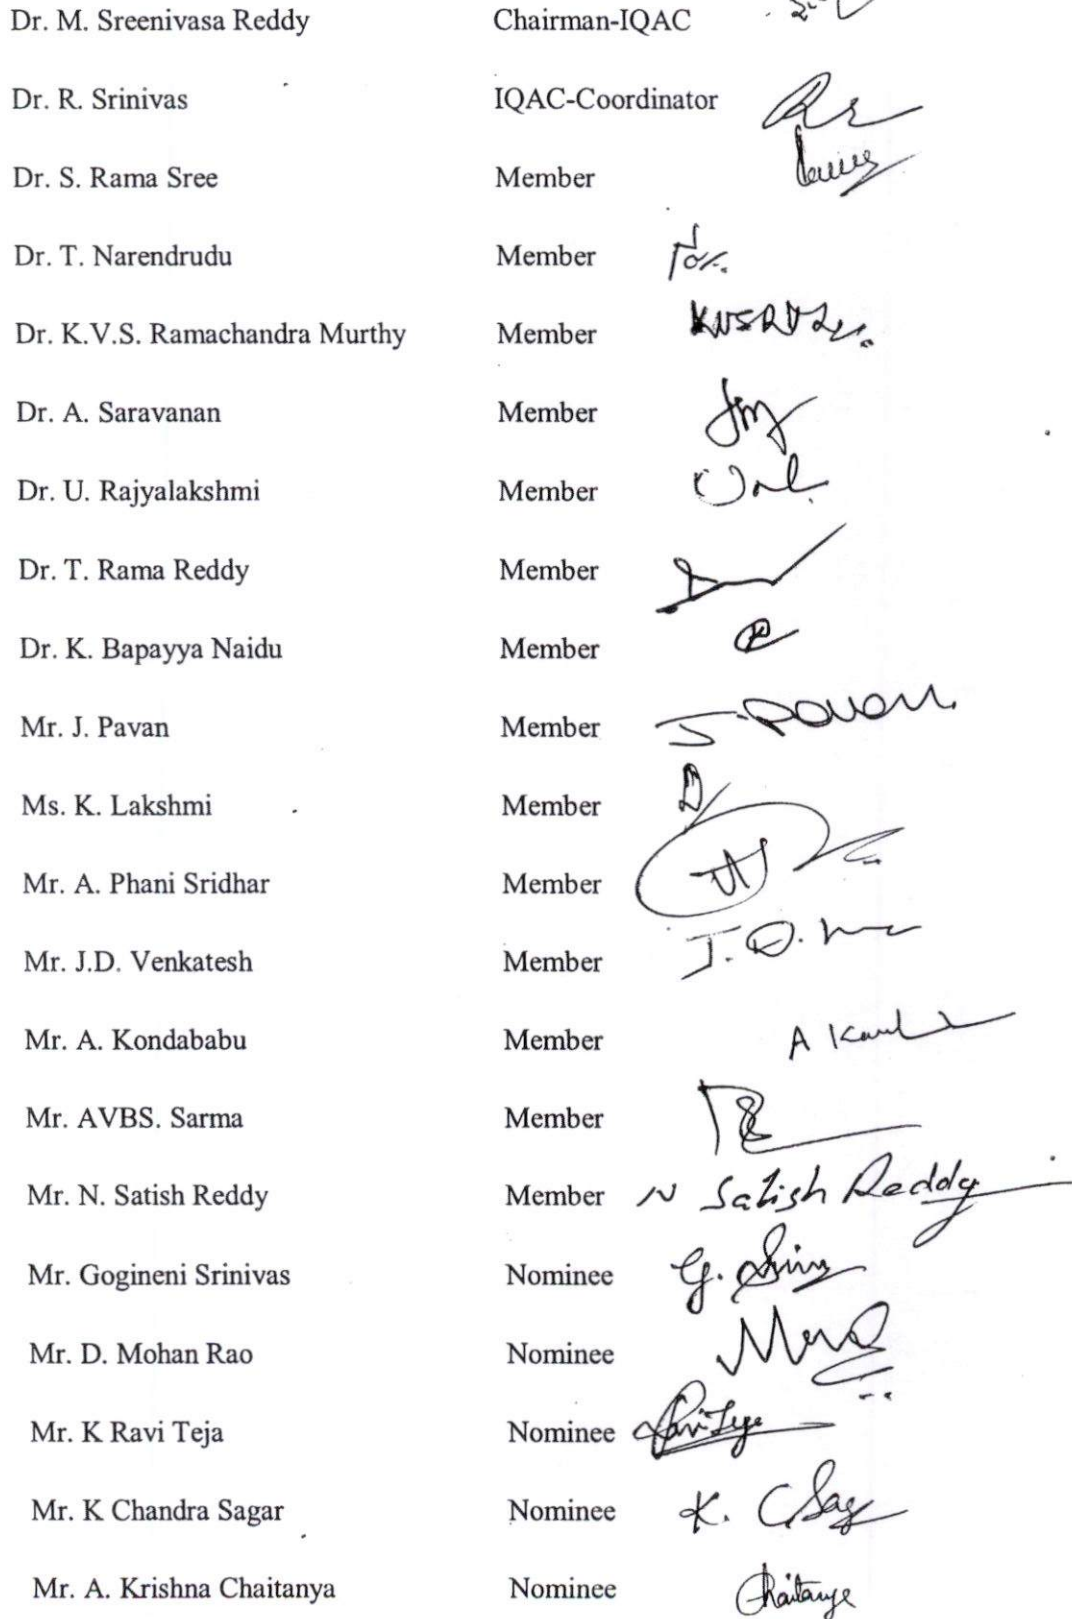 Dr. M. Sreenivasa Reddy Chairman-IQAC
Dr. R. Srinivas IQAC-Coordinator
Dr. S. Rama Sree Member
Dr. T. Narendrudu Member
Dr. K.V.S. Ramachandra Murthy Member
Dr. A. Saravanan Member
Dr. U. Rajyalakshmi Member
Dr. T. Rama Reddy Member
Dr. K. Bapayya Naidu Member
Mr. J. Pavan Member J. Pavan
Ms. K. Lakshmi Member
Mr. A. Phani Sridhar Member
Mr. J.D. Venkatesh Member J.D.
Mr. A. Kondababu Member A
Mr. AVBS. Sarma Member
Mr. N. Satish Reddy Member N Satish Reddy
Mr. Gogineni Srinivas Nominee G.
Mr. D. Mohan Rao Nominee
Mr. K Ravi Teja Nominee Ravi Teja
Mr. K Chandra Sagar Nominee K. CSag
Mr. A. Krishna Chaitanya Nominee Chaitanya